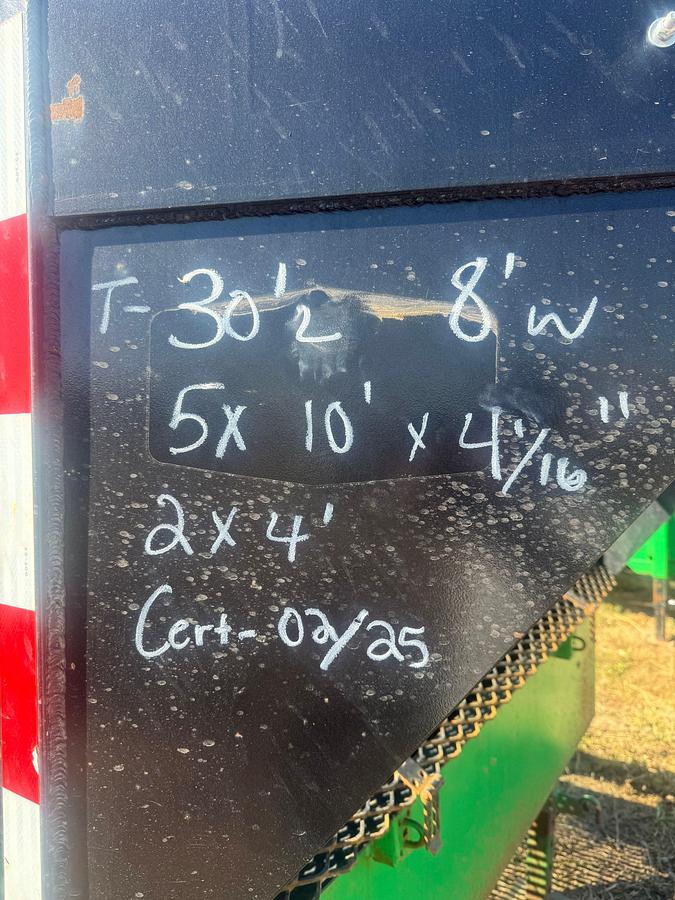 T- 30'2 8' W
5x 10' x 4 1/16"
2 x 4'
Cert- 02/25